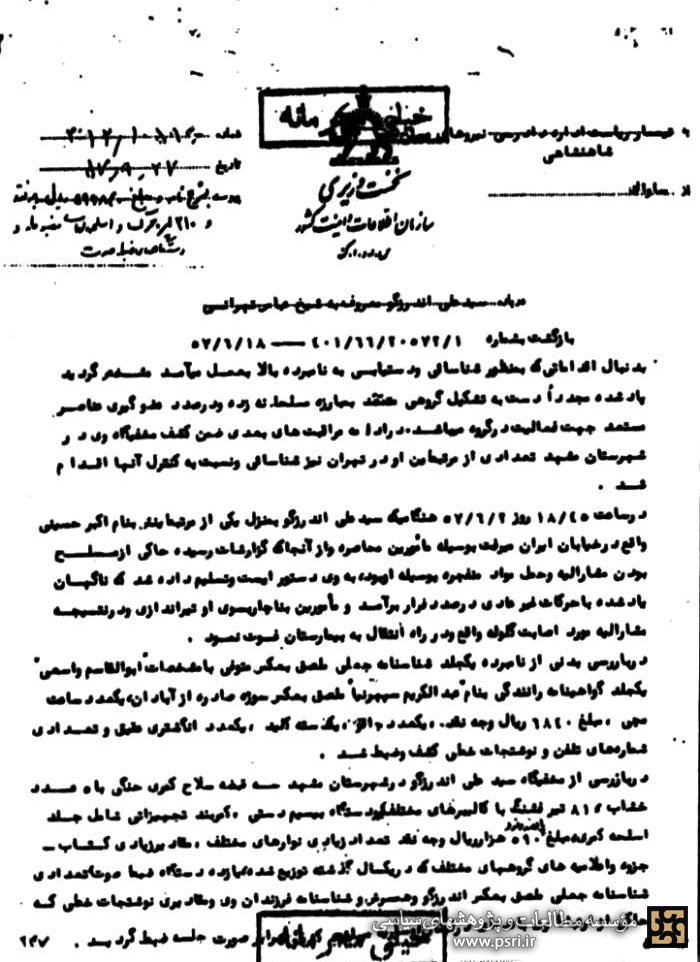 خیلی محرمانه
به تیمسار ریاست اداره دادرسی نیروهای
شاهنشاهی
از ساواک
نخست وزیری
سازمان اطلاعات و امنیت کشور
س.ا.و.ا.ک
شماره
تاریخ
پیوست
درباره سید علی اندرزگو معروف به شیخ عباس تهرانی
بازگشت بشماره ۴۰۱/۶۶/۲۰۵۷۲/۱ ــ ۵۷/۶/۱۸
بدنبال اقداماتی که بمنظور شناسائی و دستیابی به نامبرده بالا بعمل میآمد مشخص گردید
یادشده مجدداً دست به تشکیل گروهی معتقد بمبارزه مسلحانه زده و درصدد عضوگیری عناصر
مستعد جهت فعالیت در گروه میباشد. در ادامه مراقبت های بعدی ضمن کشف مخفیگاه وی در
شهرستان مشهد تعدادی از مرتبطین او در تهران نیز شناسائی و نسبت به کنترل آنها اقدام
شد .
در ساعت ۱۸/۴۵ روز ۵۷/۶/۲ هنگامیکه سید علی اندرزگو بمنزل یکی از مرتبطینش بنام اکبر حسینی
واقع در خیابان ایران میرفت بوسیله مأمورین محاصره و از آنجا که گزارشات رسیده حاکی از مسلح
بودن مشارالیه و حمل مواد منفجره بوسیله او بود، به وی دستور ایست و تسلیم داده شد که ناگهان
یادشده با حرکات غیر عادی درصدد فرار برآمد و مأمورین بناچار بسوی او تیراندازی و در نتیجه
مشارالیه مورد اصابت گلوله واقع و در راه انتقال به بیمارستان فوت نمود .
در بازرسی بدنی از نامبرده یکجلد شناسنامه جعلی ملصق بعکس متوفی با مشخصات "ابوالقاسم واسعی"
یکجلد گواهینامه رانندگی بنام "عبدالکریم سپهرنیا" ملصق بعکس سوژه صادره از آبادان، یکعدد ساعت
مچی ، مبلغ ۶۸۲۰ ریال وجه نقد ، یکعدد ، یکدسته کلید ، یکعدد انگشتری عقیق و تعدادی
شمارههای تلفن و نوشتجات خطی کشف و ضبط شد .
در بازرسی از مخفیگاه سید علی اندرزگو در شهرستان مشهد سه قبضه سلاح کمری جنگی با ۵ عدد
خشاب ، ۸۱ تیر فشنگ با کالیبرهای مختلف دو دستگاه بیسیم دستی ، کمربند تجهیزاتی شامل جلد
اسلحه کمری، مبلغ هزار ریال وجه نقد تعداد زیادی نوارهای مختلف ، مقادیر زیادی کتاب ــ
جزوه و اعلامیه های گروههای مختلف که در یکسال گذشته توزیع شده، یازده دستگاه ضبط صوت، تعدادی
شناسنامه جعلی ملصق بعکس اندرزگو و همسرش و شناسنامه فرزندان وی و مقادیری نوشتجات خطی که
صورت جلسه ضبط گردید .
خیلی محرمانه
۲۴۷
مؤسسه مطالعات و پژوهشهای سیاسی
www.psri.ir